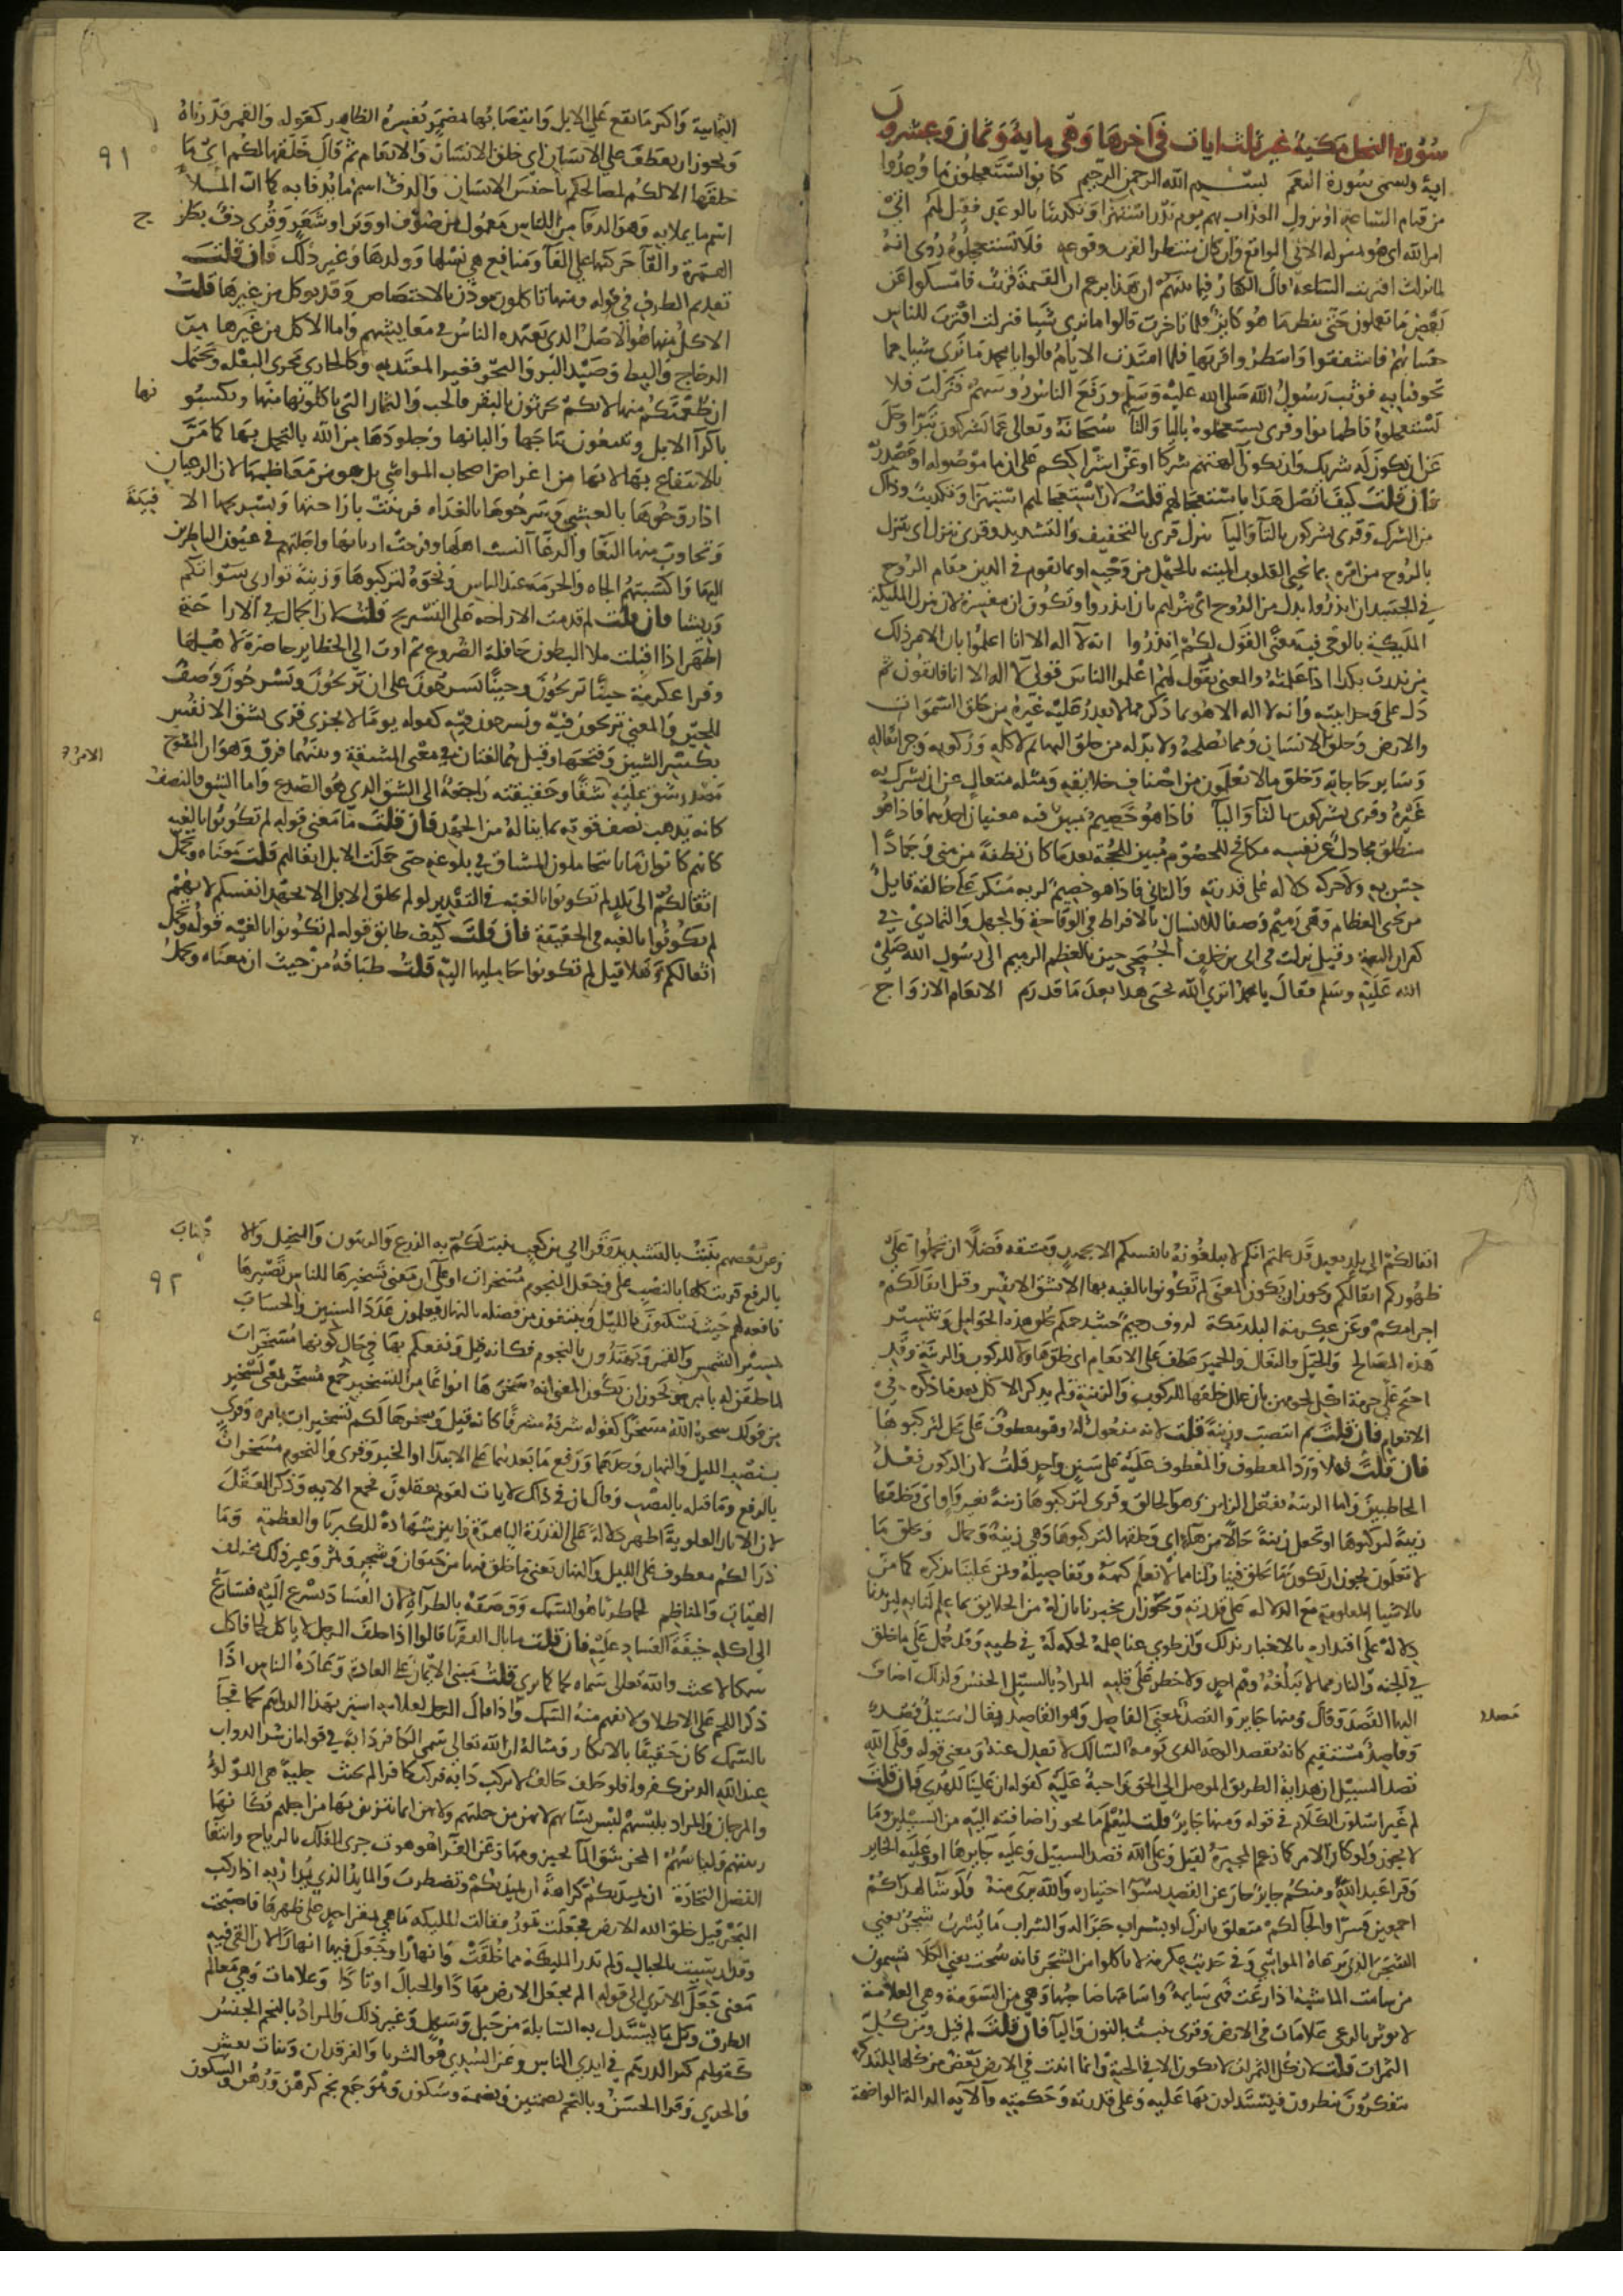 سورة النحل مكية غير ثلث ايات في اخرها وهي ماية وثمان وعشرون
اية وتسمى سورة النعم بسم الله الرحمن الرحيم كانوا يستعجلون ما وعدوا
من قيام الساعة او نزول العذاب بهم يوم بدر استهزا وتكذيبا بالوعد فقيل لهم اتى
امر الله اي هو بمنزلة الاتي الواقع وان كان منتظرا لقرب وقوعه فلا تستعجلوه روى انه
لما نزلت اقتربت الساعة قال الكفار فيما بينهم ان هذا يزعم ان القيمة قربت فامسكوا عن
بعض ما تعملون حتى ننظر ما هو كاين فلما تاخرت قالوا ما نرى شيا فنزلت اقترب للناس
حسابهم فاشفقوا وانتظروا قربها فلما امتدت الايام قالوا يا محمد ما نرى شيا مما
تخوفنا به فوثب رسول الله صلى الله عليه وسلم ورفع الناس روسهم فنزلت فلا
تستعجلوه فاطمانوا وقرى يستعجلوه باليا والتا سبحانه وتعالى عما يشركون تبرا وجل
عن ان يكون له شريك وان يكون الهتهم شركا او عن اشراككم على ان ما موصولة او مصدرية
فان قلت كيف اتصل هذا باستعجالهم قلت لان استعجالهم استهزا وتكذيب وذلك
من الشرك وقرى تشركون بالتا واليا ينزل قرى بالتخفيف والتشديد وقرى تنزل اي تتنزل
بالروح من امره بما يحيي القلوب الميتة بالجهل من وحيه او بما يقوم في الدين مقام الروح
في الجسد ان انذروا بدل من الروح اي ينزلهم بان انذروا وتكون ان مفسرة لان تنزل المليكة
المليكة بالوحي فيه معنى القول لكم انذروا انه لا اله الا انا اعلموا بان الامر ذلك
من نذرت بكذا اذا علمته والمعنى يقول لهم اعلموا الناس قولي لا اله الا انا فاتقون ثم
دل على وحدانيته وانه لا اله الا هو بما ذكر مما لا يقدر عليه غيره من خلق السموات
والارض وخلق الانسان وما يصلحه ولا بد له من خلق البهايم لاكله وركوبه وجر اثقاله
وساير حاجاته وخلق ما لا تعلمون من اصناف خلايقه ومثله متعال عن ان يشرك به
غيره وقرى تشركون بالتا واليا فاذا هو خصيم مبين فيه معنيان احدهما فاذا هو
منطيق مجادل عن نفسه مكافح للخصوم مبين للحجة بعد ما كان نطفة من مني وجمادا
حس به ولا حركة دلالة على قدرته والثاني فاذا هو خصيم لربه منكر على خالقه قايل
من يحيى العظام وهي رميم وصفا للانسان بالافراط في الوقاحة والجهل والتمادي في
كفران النعمة وقيل نزلت في ابي بن خلف الجمحي حين جا بالعظم الرميم الى رسول الله صلى
الله عليه وسلم فقال يا محمد اترى الله يحيى هذا بعد ما قد رم الانعام الازواج
٩١
الثمانية واكثر ما تقع على الابل وانتصابها بمضمر تفسيره الظاهر كقوله والقمر قدرناه
ويجوز ان يعطف على الانسان اي خلق الانسان والانعام ثم قال خلقها لكم اي ما
خلقها الا لكم لمصالحكم يا جنس الانسان والدف اسم ما يدفا به كما ان الملا
اسم ما يملا به وهو الدفا من اللباس معمول من صوف او وبر او شعر وقرى دف بطرح
الهمزة والقا حركتها على الفا ومنافع هي نسلها وولدها وغير ذلك فان قلت
تقديم الظرف في قوله ومنها تاكلون موذن بالاختصاص وقد يوكل من غيرها قلت
الاكل منها هو الاصل الذي يعتمده الناس في معايشهم واما الاكل من غيرها من
الدجاج والبط وصيد البر والبحر فغير المعتد به وكالجاري مجرى التفكه ويحتمل
ان طعمتكم منها لانكم تحرثون بالبقر فالحب والثمار التي تاكلونها منها وتكتسبون
باكرا الابل وتبيعون نتاجها والبانها وجلودها من الله بالتجمل بها كما من
بالانتفاع بها لانها من اغراض اصحاب المواشي بل هو من معاظمها لان الرعيان
اذا روحوها بالعشي وسرحوها بالغداه فزينت باراحتها وتسريحها الافنية
وتجاوب فيها الثغا والرغا انست اهلها وفرحت اربابها واجلتهم في عيون الناظرين
اليها واكسبتهم الجاه والحرمة عند الناس ونحوه لتركبوها وزينة تواري سواتكم
وريشا فان قلت لم قدمت الاراحة على التسريح قلت لان الجمال في الاراحة
اظهر اذا اقبلت ملا البطون حافلة الضروع ثم اوت الى الحظاير حاضرة لاهلها
وقرا عكرمة حينا تريحون وحينا تسرحون على ان تريحون وتسرحون وصف
للحين والمعنى تريحون فيه وتسرحون فيه كقوله يوما لا يجزى قرى بشق الانفس
بكسر الشين وفتحها وقيل هما لغتان في معنى المشقة وبينهما فرق وهو ان المفتوح
مصدر شق عليه شقا وحقيقته راجعة الى الشق الذي هو الصدع واما الشق فالنصف
كانه يذهب نصف قوته بما يناله من الجهد فان قلت ما معنى قوله لم تكونوا بالغيه
كانهم كانوا زمانا يتحاملون المشاق في بلوغه حتى حملت الابل اثقالهم قلت معناه وتحمل
اثقالكم الى بلد لم تكونوا بالغيه في التقدير لو لم تخلق الابل الا بجهد انفسكم لا انهم
لم يكونوا بالغيه في الحقيقة فان قلت كيف طابق قوله لم تكونوا بالغيه قوله وتحمل
اثقالكم وهلا قيل لم تكونوا حامليها اليه قلت طباقه من حيث ان معناه وتحمل
اثقالكم الى بلد بعيد قد علمتم انكم لا تبلغونه بانفسكم الا بجهد ومشقة فضلا ان تحملوا على
ظهوركم اثقالكم ويجوز ان يكون المعنى لم تكونوا بالغيه بها الا بشق الانفس وقيل اثقالكم
اجرامكم وعن عكرمة البلد مكة لروف رحيم حيث رحمكم بخلق هذه الحوامل وتيسير
هذه المصالح والخيل والبغال والحمير عطف على الانعام اي خلق هاولا للركوب والزينة وقد
احتج على حرمة اكل لحومهن بان علل خلقها للركوب والزينة ولم يذكر الاكل بعد ما ذكره في
الانعام فان قلت لم انتصب وزينة قلت لانه مفعول له وهو معطوف على محل لتركبوها
فان قلت فهلا ورد المعطوف والمعطوف عليه على سنن واحد قلت لان الركوب فعل
المخاطبين واما الزينة ففعل الزاين وهو الخالق وقرى لتركبوها زينة بغير واو اي وخلقها
زينة لتركبوها او تجعل زينة حالا من ها اي وخلقها لتركبوها وهي زينة وجمال ويخلق ما
لا تعلمون يجوز ان يكون ما يخلق فينا ولنا مما لا نعلم كنهه وتفاصيله ويمن علينا بذكره كما من
بالاشيا المعلومة مع الدلالة على قدرته ويجوز ان يخبرنا بان له من الخلايق ما لا علم لنا به ليزيدنا
دلالة على اقتداره بالاخبار بذلك وان طوى عنا علمه لحكمة له في طيه وقد حمل على ما خلق
في الجنة والنار مما لا يبلغه وهم احد ولا خطر على قلبه المراد بالسبيل الجنس ولذلك اضاف
اليها القصد وقال ومنها جاير والقصد بمعنى الفاصل وهو القاصد يقال سبيل قصد
وقاصد مستقيم كانه يقصد الوجه الذي يومه السالك لا يعدل عنه ومعنى قوله وعلى الله
قصد السبيل ان هداية الطريق الموصل الى الحق واجبة عليه كقوله ان علينا للهدى فان قلت
لم غير اسلوب الكلام في قوله ومنها جاير قلت ليعلم ما يجوز اضافته اليه من السبيلين وما
لا يجوز ولو كان الامر كما زعم المجبرة لقيل وعلى الله قصد السبيل وعليه جايرها او وعليه الجاير
وقرا عبد الله ومنكم جاير جار عن القصد بسو اختياره والله بري منه ولو شا لهداكم
اجمعين قسرا والجا لكم متعلق بانزل او بشراب خبرا له والشراب ما يشرب شجر يعني
الشجر الذي ترعاه المواشي وفي حديث عكرمة لا تاكلوا ثمن الشجر فانه سحت يعني الكلا تسيمون
من سامت الماشية اذا رعت فهي سايمة واسامها صاحبها وهي من السومة وهي العلامة
لانها تؤثر بالرعي علامات في الارض وقرى ينبت بالنون واليا فان قلت لم قيل ومن كل
الثمرات قلت لان كل الثمرات لا يكون الا في الجنة وانما انبت في الارض بعض من كلها للتذكرة
يتفكرون ينظرون فيستدلون بها عليه وعلى قدرته وحكمته والاية الدالة الواضحة
٩٢
وعن بعضهم ينبت بالتشديد وقرا ابي بن كعب ينبت لكم به الزرع والزيتون والنخيل والاعناب
بالرفع قريت كلها بالنصب على وجعل النجوم مسخرات او على ان معنى تسخيرها للناس تصييرها
نافعة لهم حيث يسكنون بالليل ويبتغون من فضله بالنهار ويعلمون عدد السنين والحساب
بمسير الشمس والقمر ويهتدون بالنجوم فكانه قيل ونفعكم بها في حال كونها مسخرات
لما خلقن له بامره ويجوز ان يكون المعنى انه سخرها انواعا من التسخير جمع مسخر بمعنى تسخير
من قولك سخره الله مسخرا كقوله سرحه مسرحا كانه قيل وسخرها لكم تسخيرات بامره وقرى
بنصب الليل والنهار وحدهما ورفع ما بعدهما على الابتدا والخبر وقرى والنجوم مسخرات
بالرفع وما قبله بالنصب وقال ان في ذلك لايات لقوم يعقلون فجمع الاية وذكر العقل
لان الاثار العلوية اظهر دلالة على القدرة الباهرة وابين شهادة للكبريا والعظمة وما
ذرا لكم معطوف على الليل والنهار يعني ما خلق فيها من حيوان وشجر وثمر وغير ذلك مختلف
الهيات والمناظر لحما طريا هو السمك ووصفه بالطراة لان الفساد يسرع اليه فيسارع
الى اكله خيفة الفساد عليه فان قلت ما بال الفقها قالوا اذا حلف الرجل لا ياكل لحما فاكل
سمكا لا يحنث والله تعالى سماه لحما كما ترى قلت مبنى الايمان على العادة وعادة الناس اذا
ذكر اللحم على الاطلاق لا يفهم منه السمك واذا قال الرجل لغلامه اشتر بهذا الدراهم لحما فجا
بالسمك كان حقيقا بالانكار ومثاله ان الله تعالى سمى الكافر دابة في قوله ان شر الدواب
عند الله الذين كفروا فلو حلف حالف لا يركب دابة فركب كافرا لم يحنث حلية هي اللولو
والمرجان والمراد بلبسهم لبس نسايهم لانهن من جملتهم ولانهن انما يتزين بها من اجلهم فكانها
زينتهم ولباسهم المخر شق الما بحيزومها وعن الفرا هو صوت جرى الفلك بالرياح وابتغا
الفضل التجارة ان تميد بكم كراهة ان تميد بكم وتضطرب والمايد الذي يدار به اذا ركب
البحر قيل خلق الله الارض فجعلت تمور فقالت المليكة ما هي بمقر احد على ظهرها فاصبحت
وقد ارسيت بالجبال ولم تدر المليكة مما خلقت وانهارا وجعل فيها انهارا لان القى فيه
معنى جعل الا ترى الى قوله الم نجعل الارض مهادا والجبال اوتادا وعلامات وهي معالم
الطرق وكل ما يستدل به السابلة من جبل وسهل وغير ذلك والمراد بالنجم الجنس
كقولهم كثر الدرهم في ايدي الناس وعن السدي هو الثريا والفرقدان وبنات نعش
والجدي وقرا الحسن وبالنجم بضمتين وبضمة وسكون وهو جمع نجم كرهن ورهن والسكون